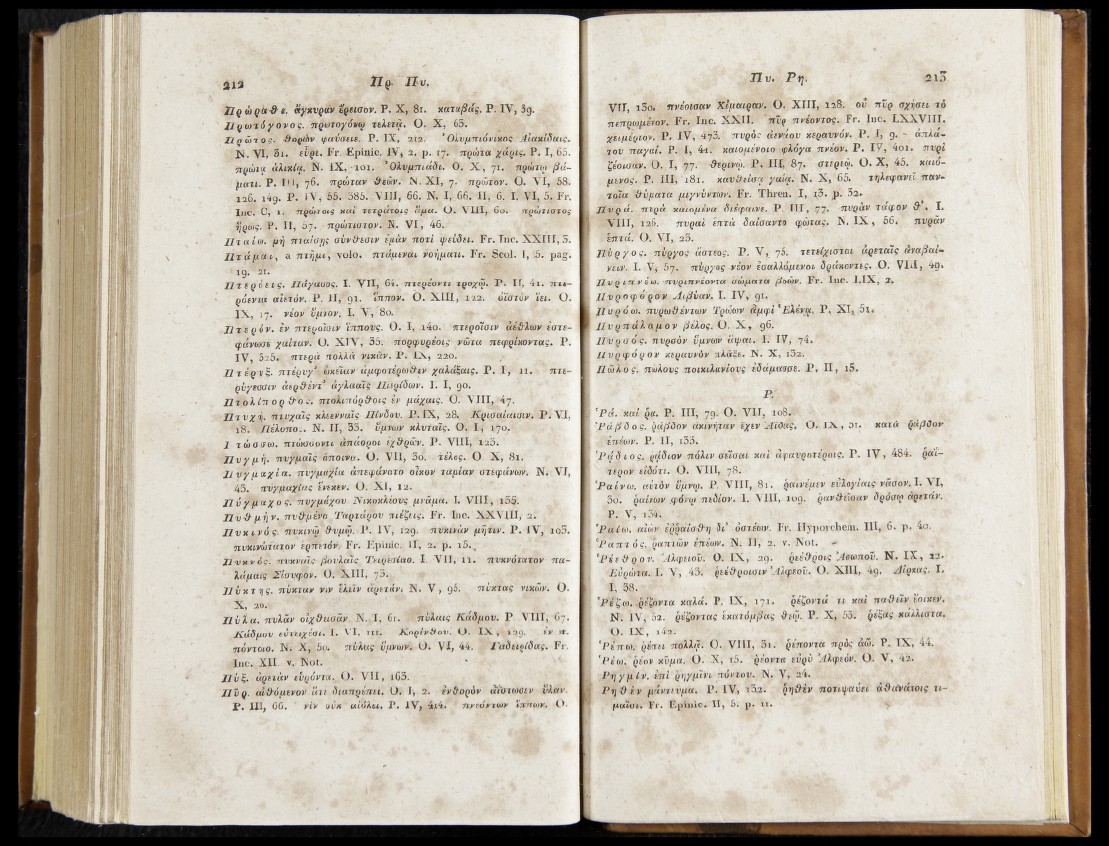 212 Πρ. Πυ.
Πρώραθε. ἄγκυραν ἔρεισον. P. X, 81. καταβάς. P. IV, 39.
Πρωτόγονος. πρωτογόνῳ τελετᾷ. O. X, 63.
Πρῶτος. θορὼν φαύσεις. P. IX, 212. Ὀλυμπιόνικος Αἰακίδαις.
N. VI, 31. εὗρε. Fr. Epinic. IV, 2. p. 17. πρώτα χάρις. P. I, 65.
πρώτᾳ ἁλικίᾳ. N. IX, 101. Ὀλυμπιάδι. O. X, 71. πρώτῳ βά-
ματι. P. III, 76. πρώταν θεῶν. N. XI, 7. πρῶτον. O. VI, 58.
126. 149. P. IV, 55. 385. VIII, 66. N. I, 66. II, 6. I. VI, 5. Fr.
Inc. C, 1. πρώτοις καὶ τετράτοις ἅμα. O. VIII, 60. πρώτιστος
ἥρως. P. II, 57. πρώτιστον. N. VI, 46.
Πταίω. μὴ πταίσῃς σύνθεσιν ἐμὰν ποτὶ ψεύδει. Fr. Inc. XXIII, 3.
Πτάμαι, a πτῆμι, volo. πτάμεναι νοήματι. Fr. Scol. I, 5. pag.
19. 21.
Πτερόεις. Πάγασος. I. VII, 64. πτερόεντι τροχῷ. P. II, 41. πτε-
ρόεντα αἰετόν. P. II, 91. ἵππον. O. XIII, 122. ὀϊστὸν ἵει. O.
IX, 17. νέον ὕμνον. I. V, 80.
Πτερόν. ἐν πτεροῖσιν ἵππους. O. I, 140. πτεροῖσιν ἀέθλων ἐστε-
φάνωσε χαίταν. O. XIV, 35. πορφυρέοις νῶτα πεφρίκοντας. P.
IV, 325. πτερὰ πολλὰ νικᾶν. P. IX, 220.
Πτέρυξ. πτέρυγ' ὠκεῖαν ἀμφοτέρωθεν χαλάξαις. P. I, 11. πτε-
ρύγεσσιν ἀερθέντ' ἀγλααῖς Πιερίδων. I. I, 90.
Πτολίπορθος. πτολιπόρθοις ἐν μάχαις. O. VIII, 47.
Πτυχή. πτυχαῖς κλεενναῖς Πίνδου. P. IX, 28. Κρισαίαισιν. P. VI,
18. Πέλοπο.. N. II, 33. ὕμνων κλυταῖς. O. I, 170.
Πτώσσω. πτώσσοντι ἀπάοροι ἐχθρῶν. P. VIII, 123.
Πυγμή. πυγμαῖς ἄποινα. O. VII, 30. τέλος. O X, 81.
Πυγμαχία. πυγμαχίᾳ ἀπεφάνατο οἶκον ταμίαν στεφάνων. N. VI,
43. πυγμαχίας ἕνεκεν. O. XI, 12.
Πύγμαχος. πυγμάχου Νικοκλέους μνᾶμα. I. VIII, 135.
Πυθμήν. πυθμένα Ταρτάρου πιέζεις. Fr. Inc. XXVIII, 2.
Πυκινός. πυκινῷ θυμῷ. P. IV, 129. πυκινὰν μῆτιν. P. IV, 103.
πυκινώτατον ἑρπετόν. Fr. Epinic. II, 2. p. 15.
Πυκνός. πυκναῖς βουλαῖς Τειρεσίαο. I VII, 11. πυκνότατον πα-
λάμαις Σίσυφον. O. XIII, 73.
Πύκτης. πύκταν νιν ἑλεῖν ἀρετάν. N. V, 95. πύκτας νικῶν. O.
X, 20.
Πύλα. πυλᾶν οἰχθεισᾶν N. I, 61. πύλαις Κάδμου. P VIII, 67.
Κάδμου εὐτειχέσι. I. VI, 111. Κορίνθου. O. IX, 129. ἐν π.
πόντοιο. N. X, 50. πύλας ὕμνων. O. VI, 44. Γαδειρίδας. Fr.
Inc. XII. v. Not.
Πύξ. ἀρετὰν εὑρόντα. O. VII, 163.
Πῦρ. αἰθόμενον ἅτε διαπρέπει. O. I, 2. ἐνθορὸν ἀΐστωσεν ὕλαν.
P. III, 66. νὶν οὐκ αἰόλει. P. IV, 414. πνεόντων ἵππων. O.
Πυ. Ρη. 213
VII, 130. πνέοισαν Χίμαιραν. O. XIII, 128. οὐ πῦρ σχήσει τὸ
πεπρωμένον. Fr. Inc. XXII. πῦρ πνέοντος. Fr. Inc. LXXVIII.
χειμέριον. P. IV, 473. πυρὸς ἀενάου κεραυνόν. P. I, 9. - ἀπλά-
του παγαί. P. I, 41. καιομένοιο φλόγα πνέον. P. IV, 401. πυρὶ
ζέοισαν. O. I, 77. θερινῷ. P. III, 87. στερεῷ. O. X, 45. καιό-
μενος. P. III, 181. καυθεῖσᾳ γαίᾳ. N. X, 65. τηλεφανεῖ παν-
τοῖα θύματα μιγνύντων. Fr. Thren. I, 13. p. 32.
Πυρά. πυρὰ καιομένα διέφαινε. P. III, 77. πυρὰν τάφον θ'. I.
VIII, 126. πυραὶ ἑπτὰ δαίσαντο φῶτας. N. IX, 56. πυρὰν
ἑπτά. O. VI, 23.
Πύργος. πύργος ἄστεος. P. V, 75. τετείχισται ἀρεταῖς ἀναβαί-
νειν. I. V, 57. πύργος νέον ἐσαλλόμενοι δράκοντες. O. VIII, 49.
Πυριπνέω. πυριπνέοντα σώματα βοῶν. Fr. Inc. LIX, 2.
Πυροφόρον Λιβύαν. I. IV, 91.
Πυρόω. πυρωθέντων Τρώων ἀμφὶ Ἑλένᾳ. P. XI, 51.
Πυρπάλαμον βέλος. O. X, 96.
Πυρσός. πυρσὸν ὕμνων ἅψαι. I. IV, 74.
Πυρφόρον κεραυνὸν πλᾶξε. N. X, 132.
Πῶλος. πώλους ποικιλανίους ἐδάμασσε. P. II, 15.
P.
Ῥά. καί ῥα. P. III, 79. O. VII, 108.
Ῥάβδος. ῥάβδον ἀκινήταν ἔχεν Ἀΐδας. O. IX, 51. κατὰ ῥάβδον
ἐπέων. P. II, 133.
Ῥάδιος. ῥᾴδιον πόλιν σεῖσαι καὶ ἀφαυροτέροις. P. IV, 484. ῥαΐ-
τερον εἰδότι. O. VIII, 78.
Ῥαίνω. αὐτὸν ὕμνῳ. P. VIII, 81. ῥαινέμεν εὐλογίαις νᾶσον. I. VI,
30. ῥαίνων φόνῳ πεδίον. I. VIII, 109. ῥανθεῖσαν δρόσῳ ἀρετάν.
P. V, 134.
Ῥαίω. αἰὼν ἐῤῥαίσθη δι' ὀστέων. Fr. Hyporchem. III, 6. p. 40.
Ῥαπτός. ῥαπτῶν ἐπέων. N. II, 2. v. Not.
Ῥέεθρον. Ἀλφειοῦ. O. IX, 29. ῥεέθροις Ἀσωποῦ. N. IX, 22.
Εὐρώτα. I. V, 43. ῥεέθροισιν Ἀλφεοῦ. O. XIII, 49. Δίρκας. I.
I, 38.
Ῥέζω. ῥέζοντα καλά. P. IX, 171. ῥέζοντά τι καὶ παθεῖν ἔοικεν.
N. IV, 52. ῥέζοντας ἑκατόμβας θεῷ. P. X, 53. ῥέξας κάλλιστα.
O. IX, 142.
Ῥέπω. ῥέπει πολλᾷ. O. VIII, 31. ῥέποντα πρὸς ἀῶ. P. IX, 44.
Ῥέω. ῥέον κῦμα. O. X, 15. ῥέοντα εὐρὺ Ἀλφεόν. O. V, 42.
Ρηγμίν. ἐπὶ ῥηγμῖνι πόντου. N. V, 24.
Ρηθὲν μάντευμα. P. IV, 132. ῥηθὲν ποτιψαύει ἀθανάτοις τι-
μαῖσι. Fr. Epinic. II, 5. p. 11.